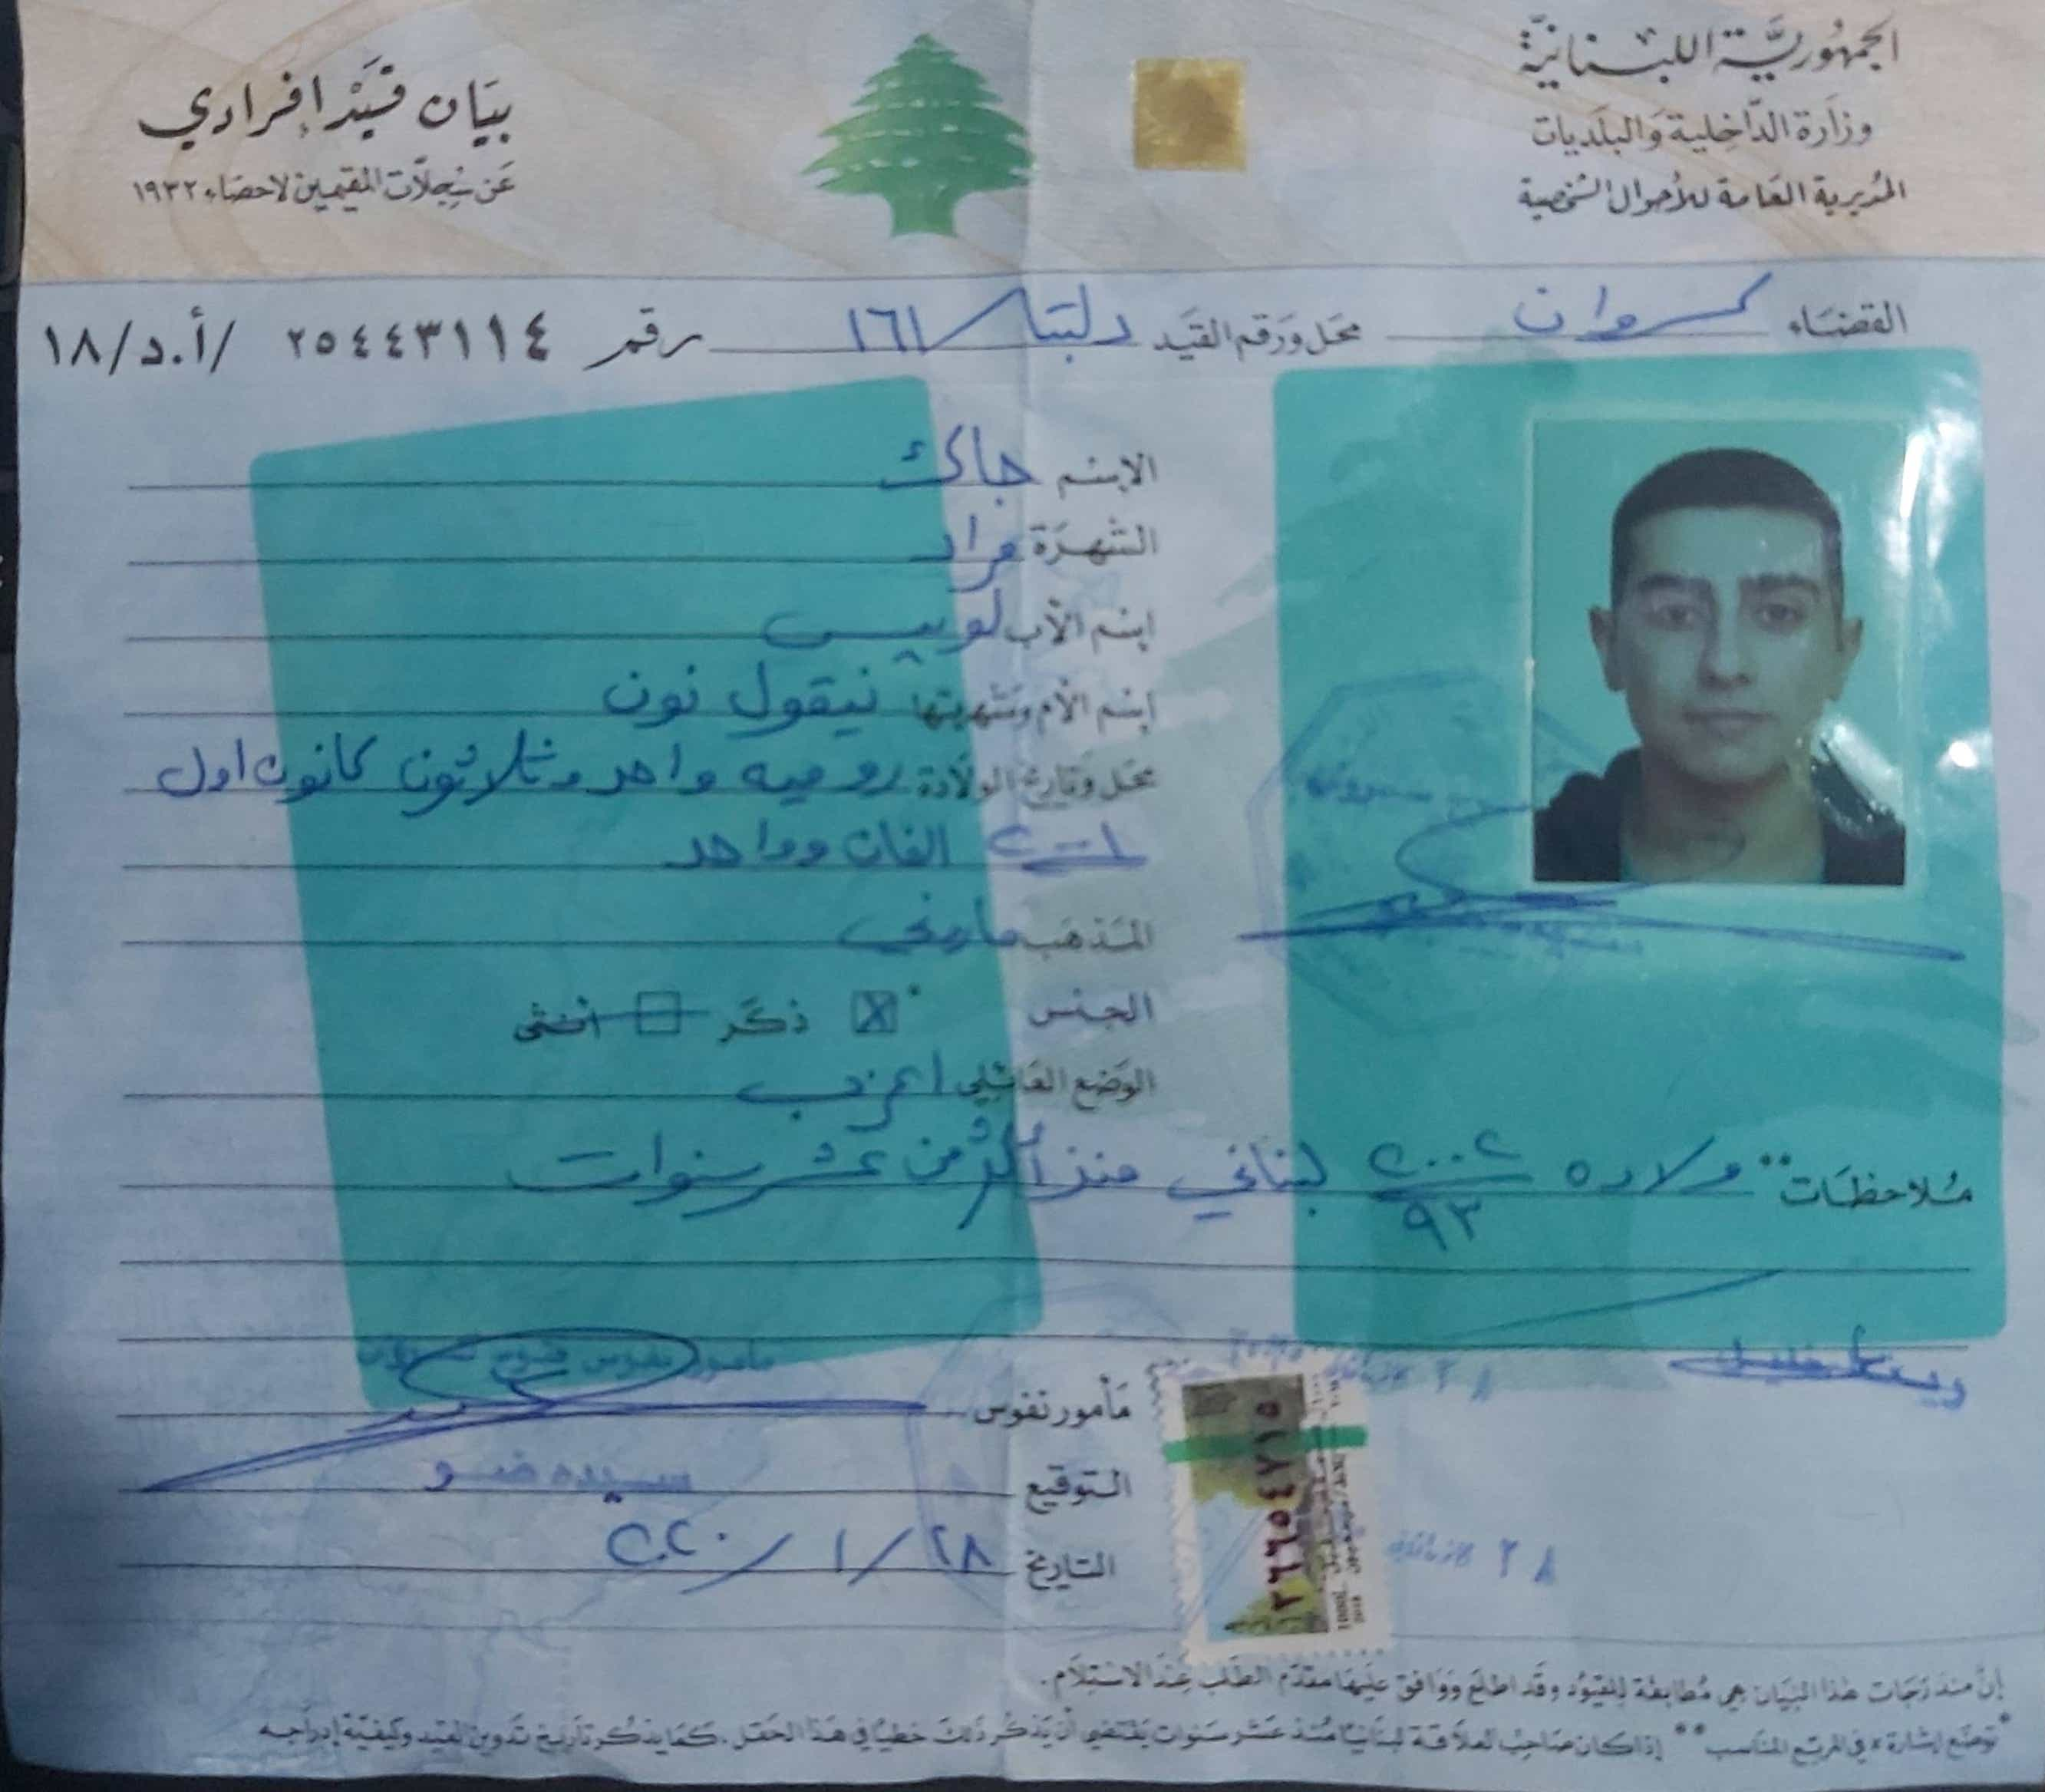 الجمهورية اللبنانية
وزارة الداخلية والبلديات
المديرية العامة للأحوال الشخصية
بيان قيد إفرادي
عن سجلات المقيمين لاحصاء ١٩٣٢
القضاء كسروان محل ورقم القيد دلبتا / ١٦١ رقم ٢٥٤٤٣١١٤ /أ.د/١٨
الاسم جاك
الشهرة مراد
اسم الأب لويس
اسم الأم وشهرتها نيقول نون
محل وتاريخ الولادة روميه واحد وثلاثون كانون اول
٢٠٠١ الفان وواحد
المذهب ماروني
الجنس ذكر انثى
الوضع العائلي اعزب
ملاحظات** ولاده ٢٠٠٢/٩٣ لبناني منذ أكثر من عشر سنوات
مأمور نفوس
مأمور نفوس
التوقيع سيده ضو
التاريخ ٢٨ / ١ / ٢٠٢٠
٢٦٦٥٤٧١٥
إن مندرجات هذا البيان هي مطابقة للقيود وقد اطلع ووافق عليها مقدم الطلب عند الاستلام.
* توضع إشارة × في المربع المناسب ** إذا كان صاحب العلاقة لبنانيا منذ عشر سنوات يقتضي أن يذكر ذلك خطيا في هذا الحقل. كما يذكر تاريخ تدوين القيد وكيفية إدراجه